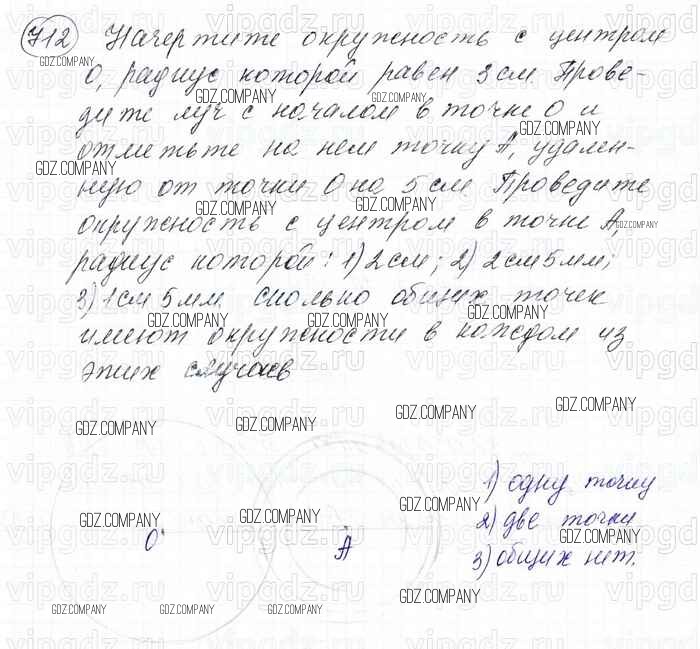 712 Начертите окружность с центром
О, радиус которой равен 3 см. Прове-
дите луч с началом в точке О и
отметьте на нем точку А, удален-
ную от точки О на 5 см. Проведите
окружность с центром в точке А,
радиус которой: 1) 2 см; 2) 2 см 5 мм;
3) 1 см 5 мм. сколько общих точек
имеют окружности в каждом из
этих случаев
1) одну точку
2) две точки
О А
3) общих нет.
GDZ.COMPANY
vipgdz.ru